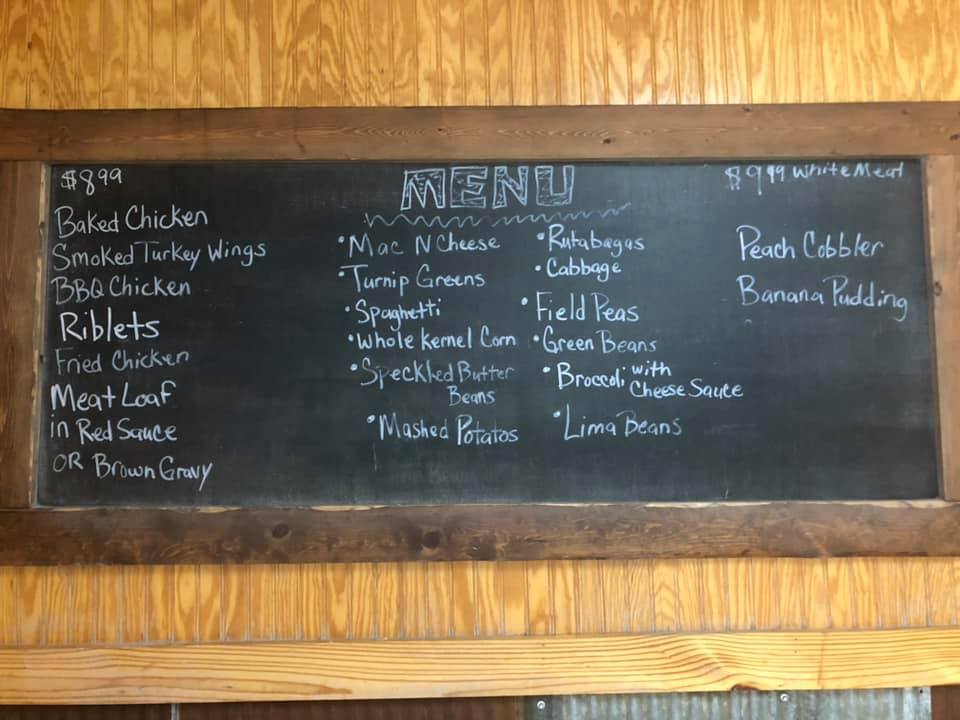 $8.99
Baked Chicken
Smoked Turkey Wings
BBQ Chicken
Riblets
Fried Chicken
Meat Loaf
in Red Sauce
OR Brown Gravy
MENU
• Mac N Cheese
• Turnip Greens
• Spaghetti
• Whole Kernel Corn
• Speckled Butter
Beans
• Mashed Potatos
• Rutabagas
• Cabbage
• Field Peas
• Green Beans
• Broccoli with
Cheese Sauce
• Lima Beans
$9.99 White Meat
Peach Cobbler
Banana Pudding